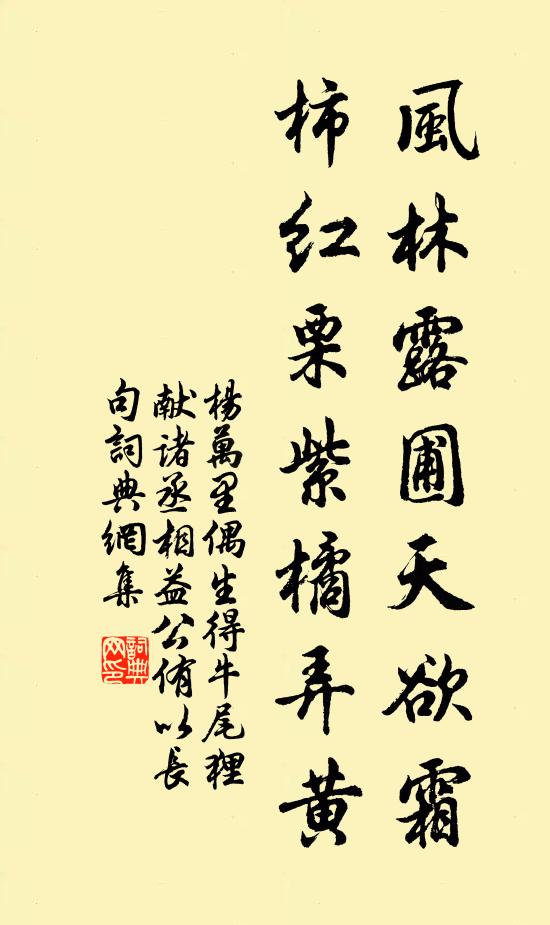 風林露圃天欲霜
柿红栗紫橘弄黄
楊萬里偶生得牛尾狸
献诸丞相益公侑以長
句詞典網集
詞典网印